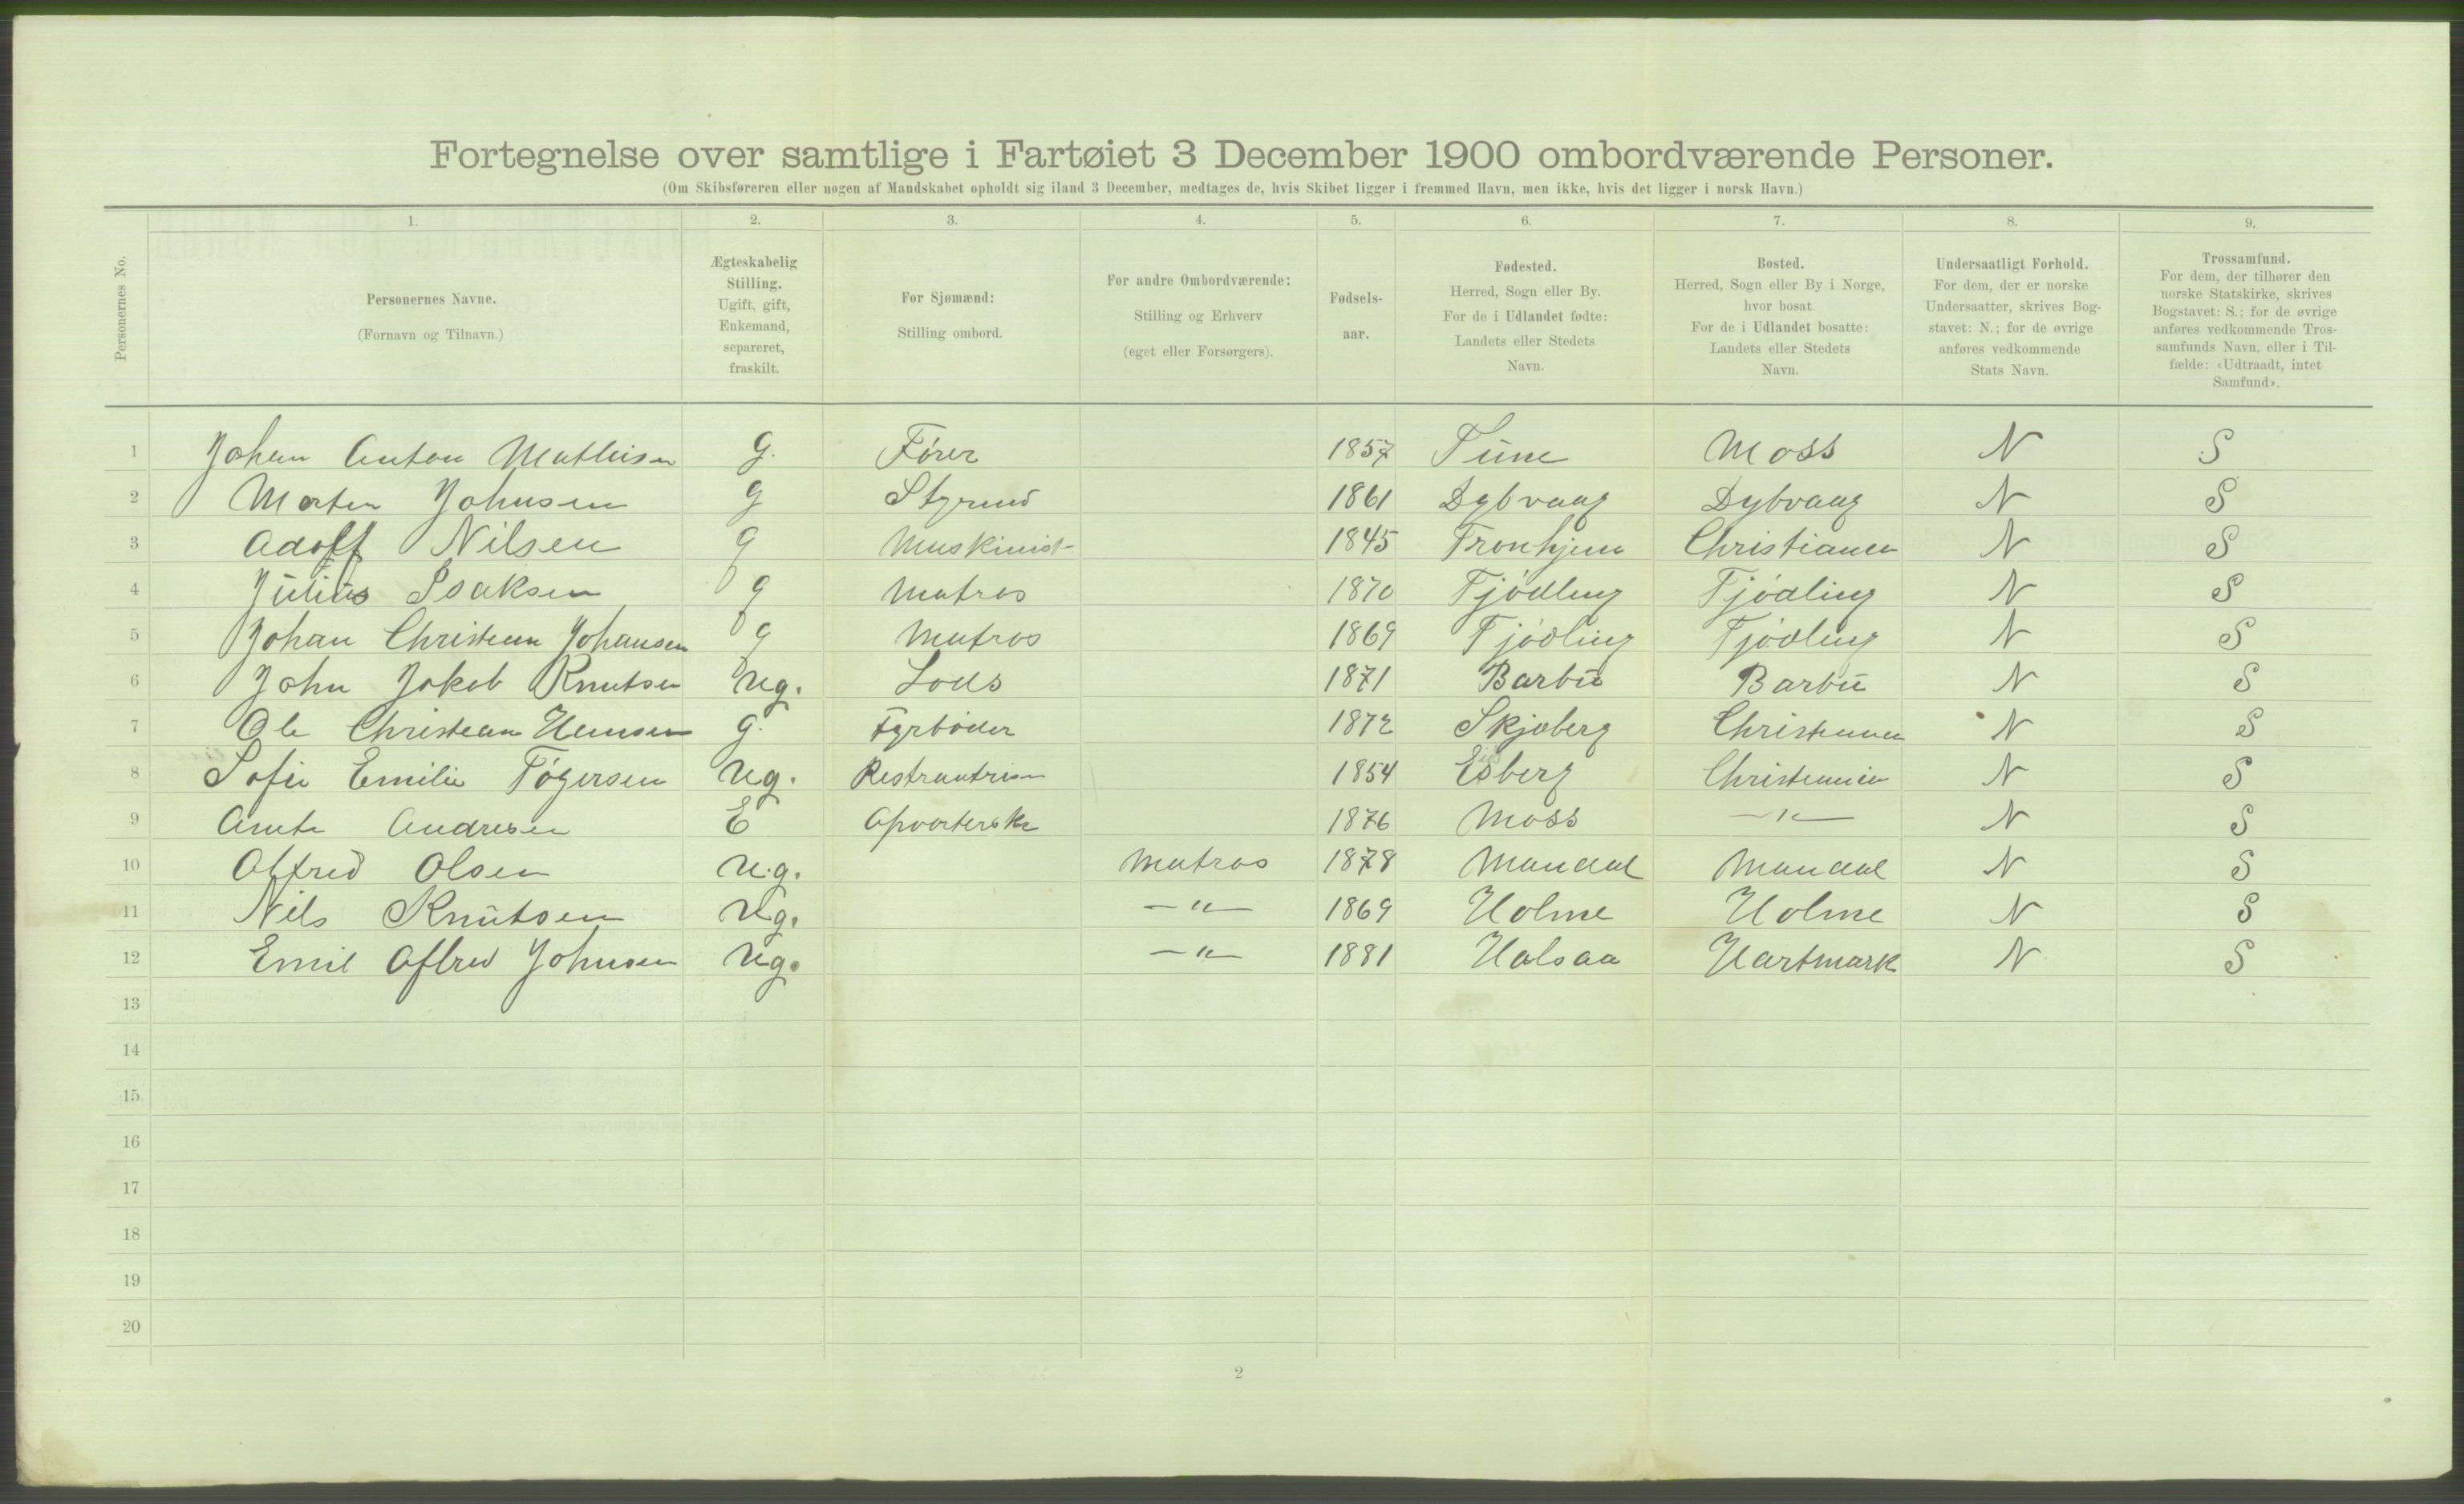 Fortegnelse over samtlige i Fartøiet 3 December 1900 ombordværende Personer.
(Om Skibsføreren eller nogen af Mandskabet opholdt sig iland 3 December, medtages de, hvis Skibet ligger i fremmed Havn, men ikke, hvis det ligger i norsk Havn.)
Personernes No.
1. 2. 3. 4. 5. 6. 7. 8. 9.
Personernes Navne.
(Fornavn og Tilnavn.)
Ægteskabelig
Stilling.
Ugift, gift,
Enkemand,
separeret,
fraskilt.
For Sjømænd:
Stilling ombord.
For andre Ombordværende:
Stilling og Erhverv
(eget eller Forsørgers).
Fødsels-
aar.
Fødested.
Herred, Sogn eller By.
For de i Udlandet fødte:
Landets eller Stedets
Navn.
Bosted.
Herred, Sogn eller By i Norge,
hvor bosat
For de i Udlandet bosatte:
Landets eller Stedets
Navn.
Undersaatligt Forhold.
For dem, der er norske
Undersaatter, skrives Bog-
stavet: N.; for de øvrige
anføres vedkommende
Stats Navn.
Trossamfund.
For dem, der tilhører den
norske Statskirke, skrives
Bogstavet: S.; for de øvrige
anføres vedkommende Tros-
samfunds Navn, eller i Til-
fælde: «Udtraadt, intet
Samfund».
1 Johan Anton Mathisen g. Fører 1857 Tune Moss N S
2 Morten Johnsen g Styrmd 1861 Dybvaag Dybvaag N S
3 Adolf Nilsen g Maskinist 1845 Tronhjem Christiania N S
4 Julius Isaksen g Matros 1870 Tjødling Tjødling N S
5 Johan Christian Johansen g Matros 1869 Tjødling Tjødling N S
6 John Jakob Knutsen Ug. Lods 1871 Barbu Barbu N S
7 Ole Christian Hansen g. Fyrbøder 1872 Skjeberg Christiania N S
8 Sofie Emilie Tøgersen Ug. Restrautrise 1854 Esberg Christiania N S
9 Anete Andresen E Opvarterske 1876 Moss —"— N S
10 Alfred Olsen U.g. Matros 1878 Mandal Mandal N S
11 Nils Knutsen Ug. —"— 1869 Holme Holme N S
12 Emil Alfred Johnsen Ug. —"— 1881 Halsaa Hartmark N S
13
14
15
16
17
18
19
20
2